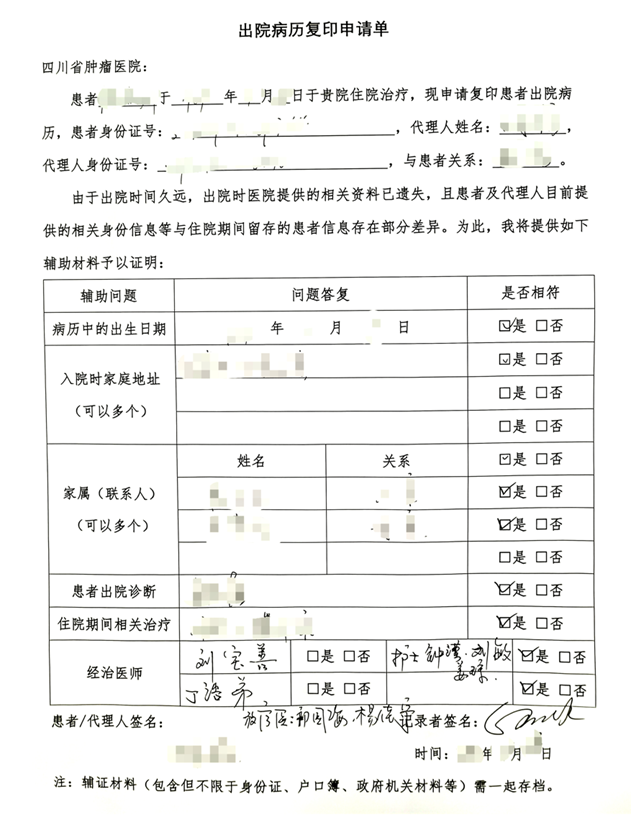 出院病历复印申请单
四川省肿瘤医院：
患者 于 年 月 日于贵院住院治疗，现申请复印患者出院病
历，患者身份证号： ，代理人姓名： ，
代理人身份证号： ，与患者关系： 。
由于出院时间久远，出院时医院提供的相关资料已遗失，且患者及代理人目前提
供的相关身份信息等与住院期间留存的患者信息存在部分差异。为此，我将提供如下
辅助材料予以证明：
辅助问题 问题答复 是否相符
病历中的出生日期 年 月 日 ☑是 □否
入院时家庭地址
（可以多个）
☑是 □否
□是 □否
□是 □否
家属（联系人）
（可以多个）
姓名 关系 ☑是 □否
☑是 □否
☑是 □否
□是 □否
患者出院诊断 ☑是 □否
住院期间相关治疗 ☑是 □否
经治医师 刘宝善 □是 □否 护士 钟 刘敏 ☑是 □否
丁 □是 □否 ☑是 □否
患者/代理人签名： 记录者签名：
时间： 年 月 日
注：辅证材料（包含但不限于身份证、户口簿、政府机关材料等）需一起存档。